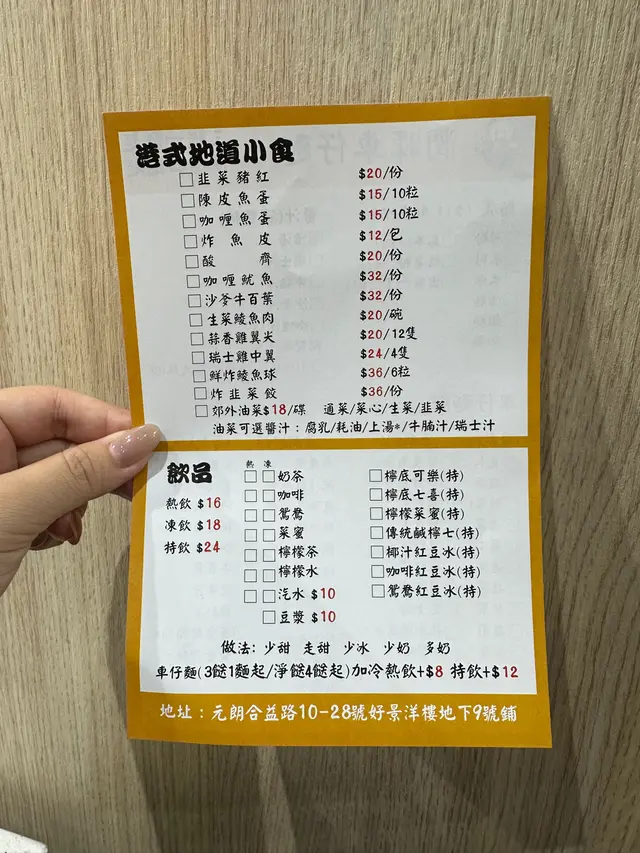 港式地道小食
韭菜豬紅 $20/份
陳皮魚蛋 $15/10粒
咖喱魚蛋 $15/10粒
炸魚皮 $12/包
酸齊 $20/份
咖喱魷魚 $32/份
沙爹牛百葉 $32/份
生菜鯪魚肉 $20/碗
蒜香雞翼尖 $20/12隻
瑞士雞中翼 $24/4隻
鮮炸鯪魚球 $36/6粒
炸韭菜餃 $36/份
郊外油菜$18/碟 通菜/菜心/生菜/韭菜
油菜可選醬汁：腐乳/耗油/上湯*/牛腩汁/瑞士汁
飲品
熱飲 $16
凍飲 $18
特飲 $24
熱 凍
奶茶
咖啡
鴛鴦
菜蜜
檸檬茶
檸檬水
汽水 $10
豆漿 $10
檸底可樂(特)
檸底七喜(特)
檸檬菜蜜(特)
傳統鹹檸七(特)
椰汁紅豆冰(特)
咖啡紅豆冰(特)
鴛鴦紅豆冰(特)
做法: 少甜 走甜 少冰 少奶 多奶
車仔麵(3餸1麵起/淨餸4餸起)加冷熱飲+$8 特飲+$12
地址：元朗合益路10-28號好景洋樓地下9號鋪